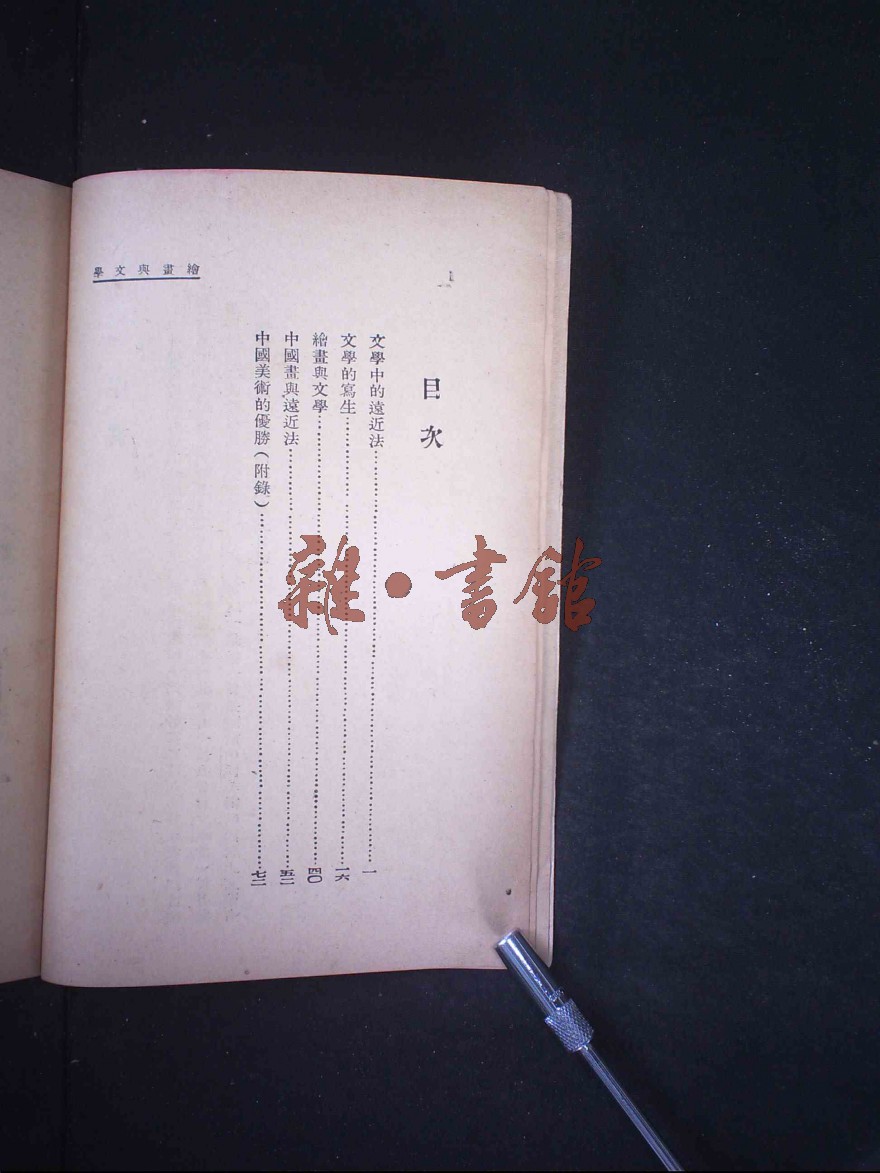 繪畫與文學
1
目次
文學中的遠近法……一
文學的寫生……一六
繪畫與文學……四〇
中國畫與遠近法……五二
中國美術的優勝（附錄）……七二
雜·書館